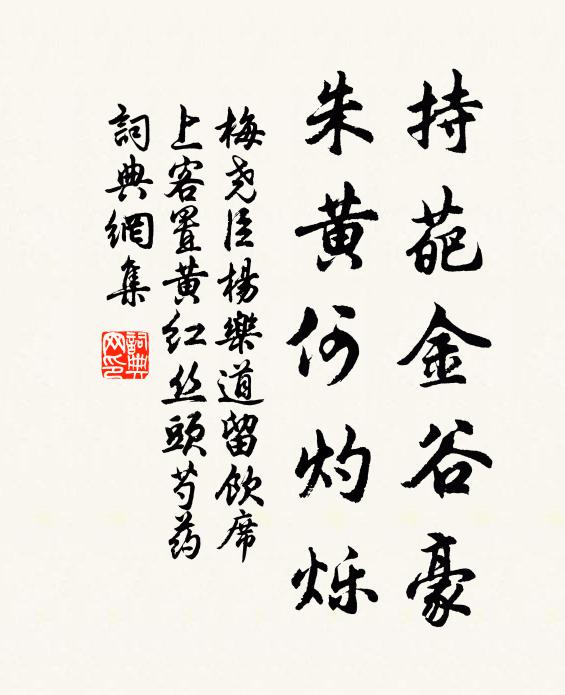 持葩金谷豪
朱黄何灼烁
梅尧臣杨樂道留饮席
上客置黄红丝頭芍药
詞典網集
詞典網印